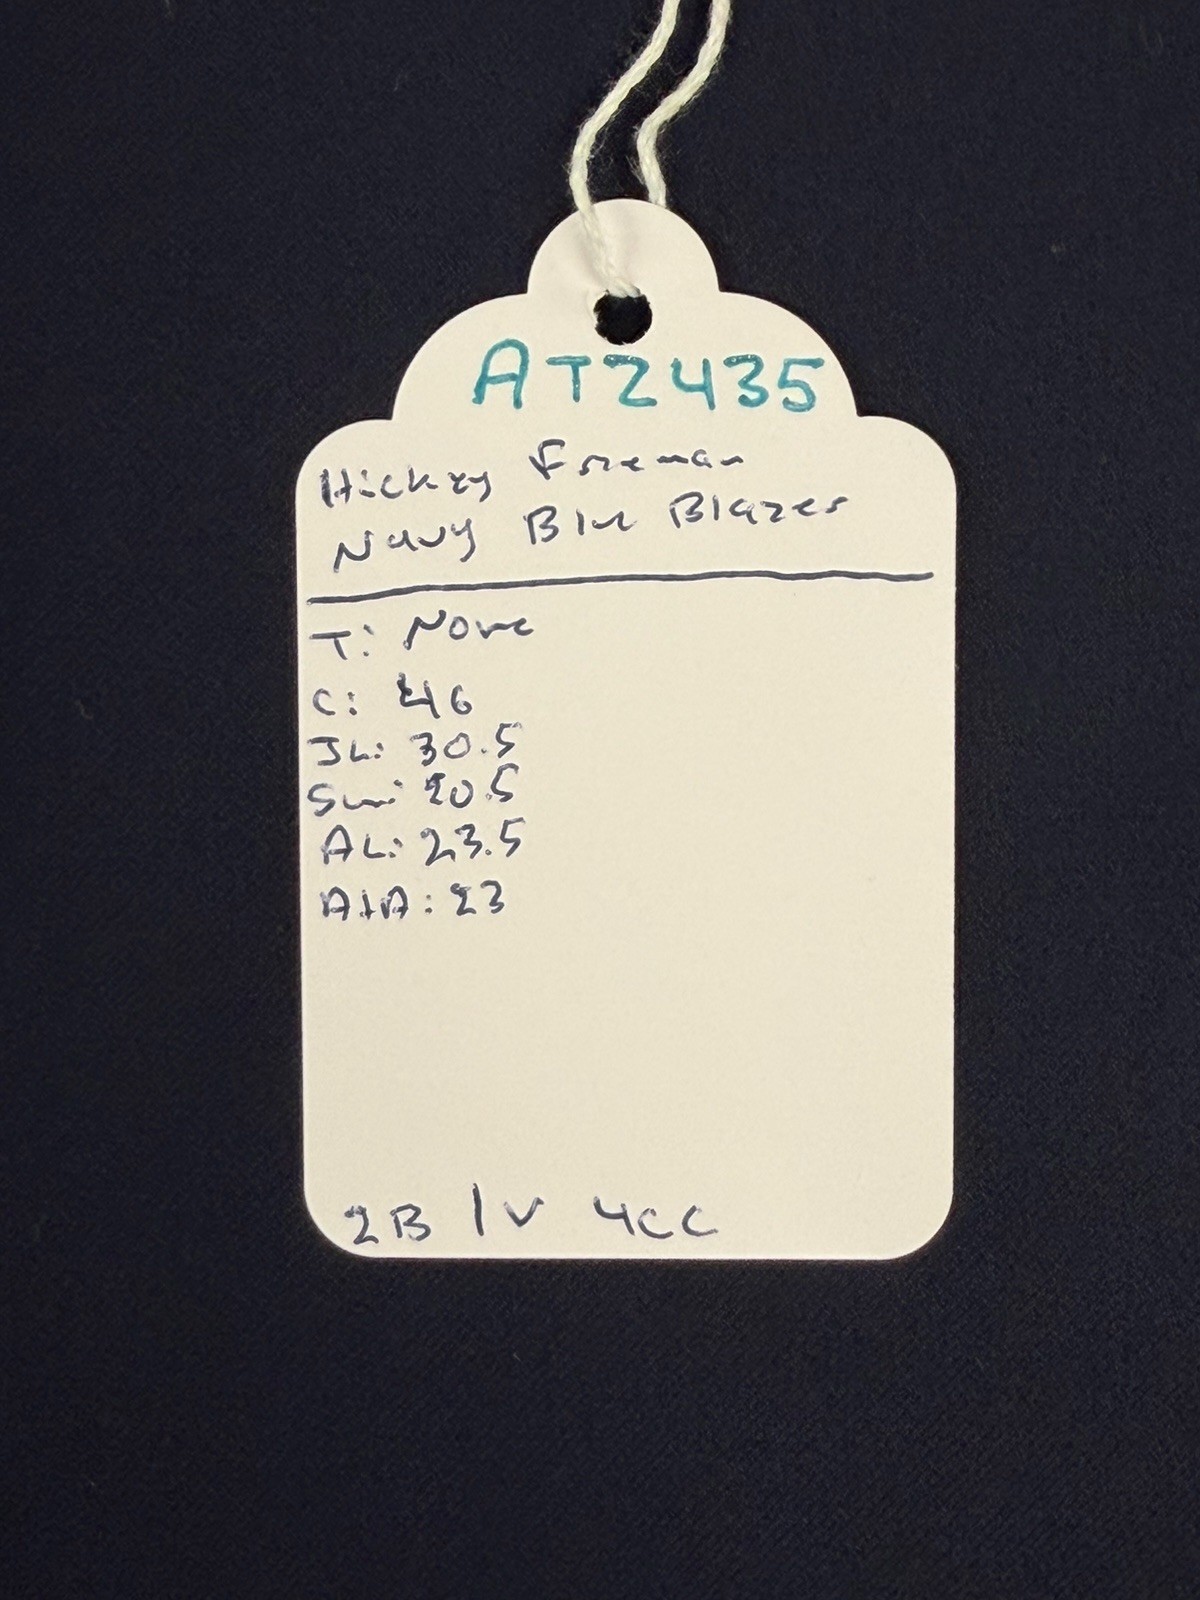 AT2435
Hickey Freeman
Navy Blue Blazer
T: None
C: 46
JL: 30.5
SW: 20.5
AL: 23.5
AtA: 23
2B 1V 4CC